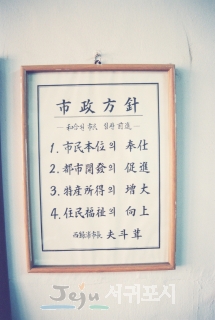 市政方針
1. 市民本位의 奉仕
2. 都市開發의 促進
3. 特産所得의 增大
4. 住民福祉의 向上
西歸浦市長 夫斗葺
Jeju 서귀포시